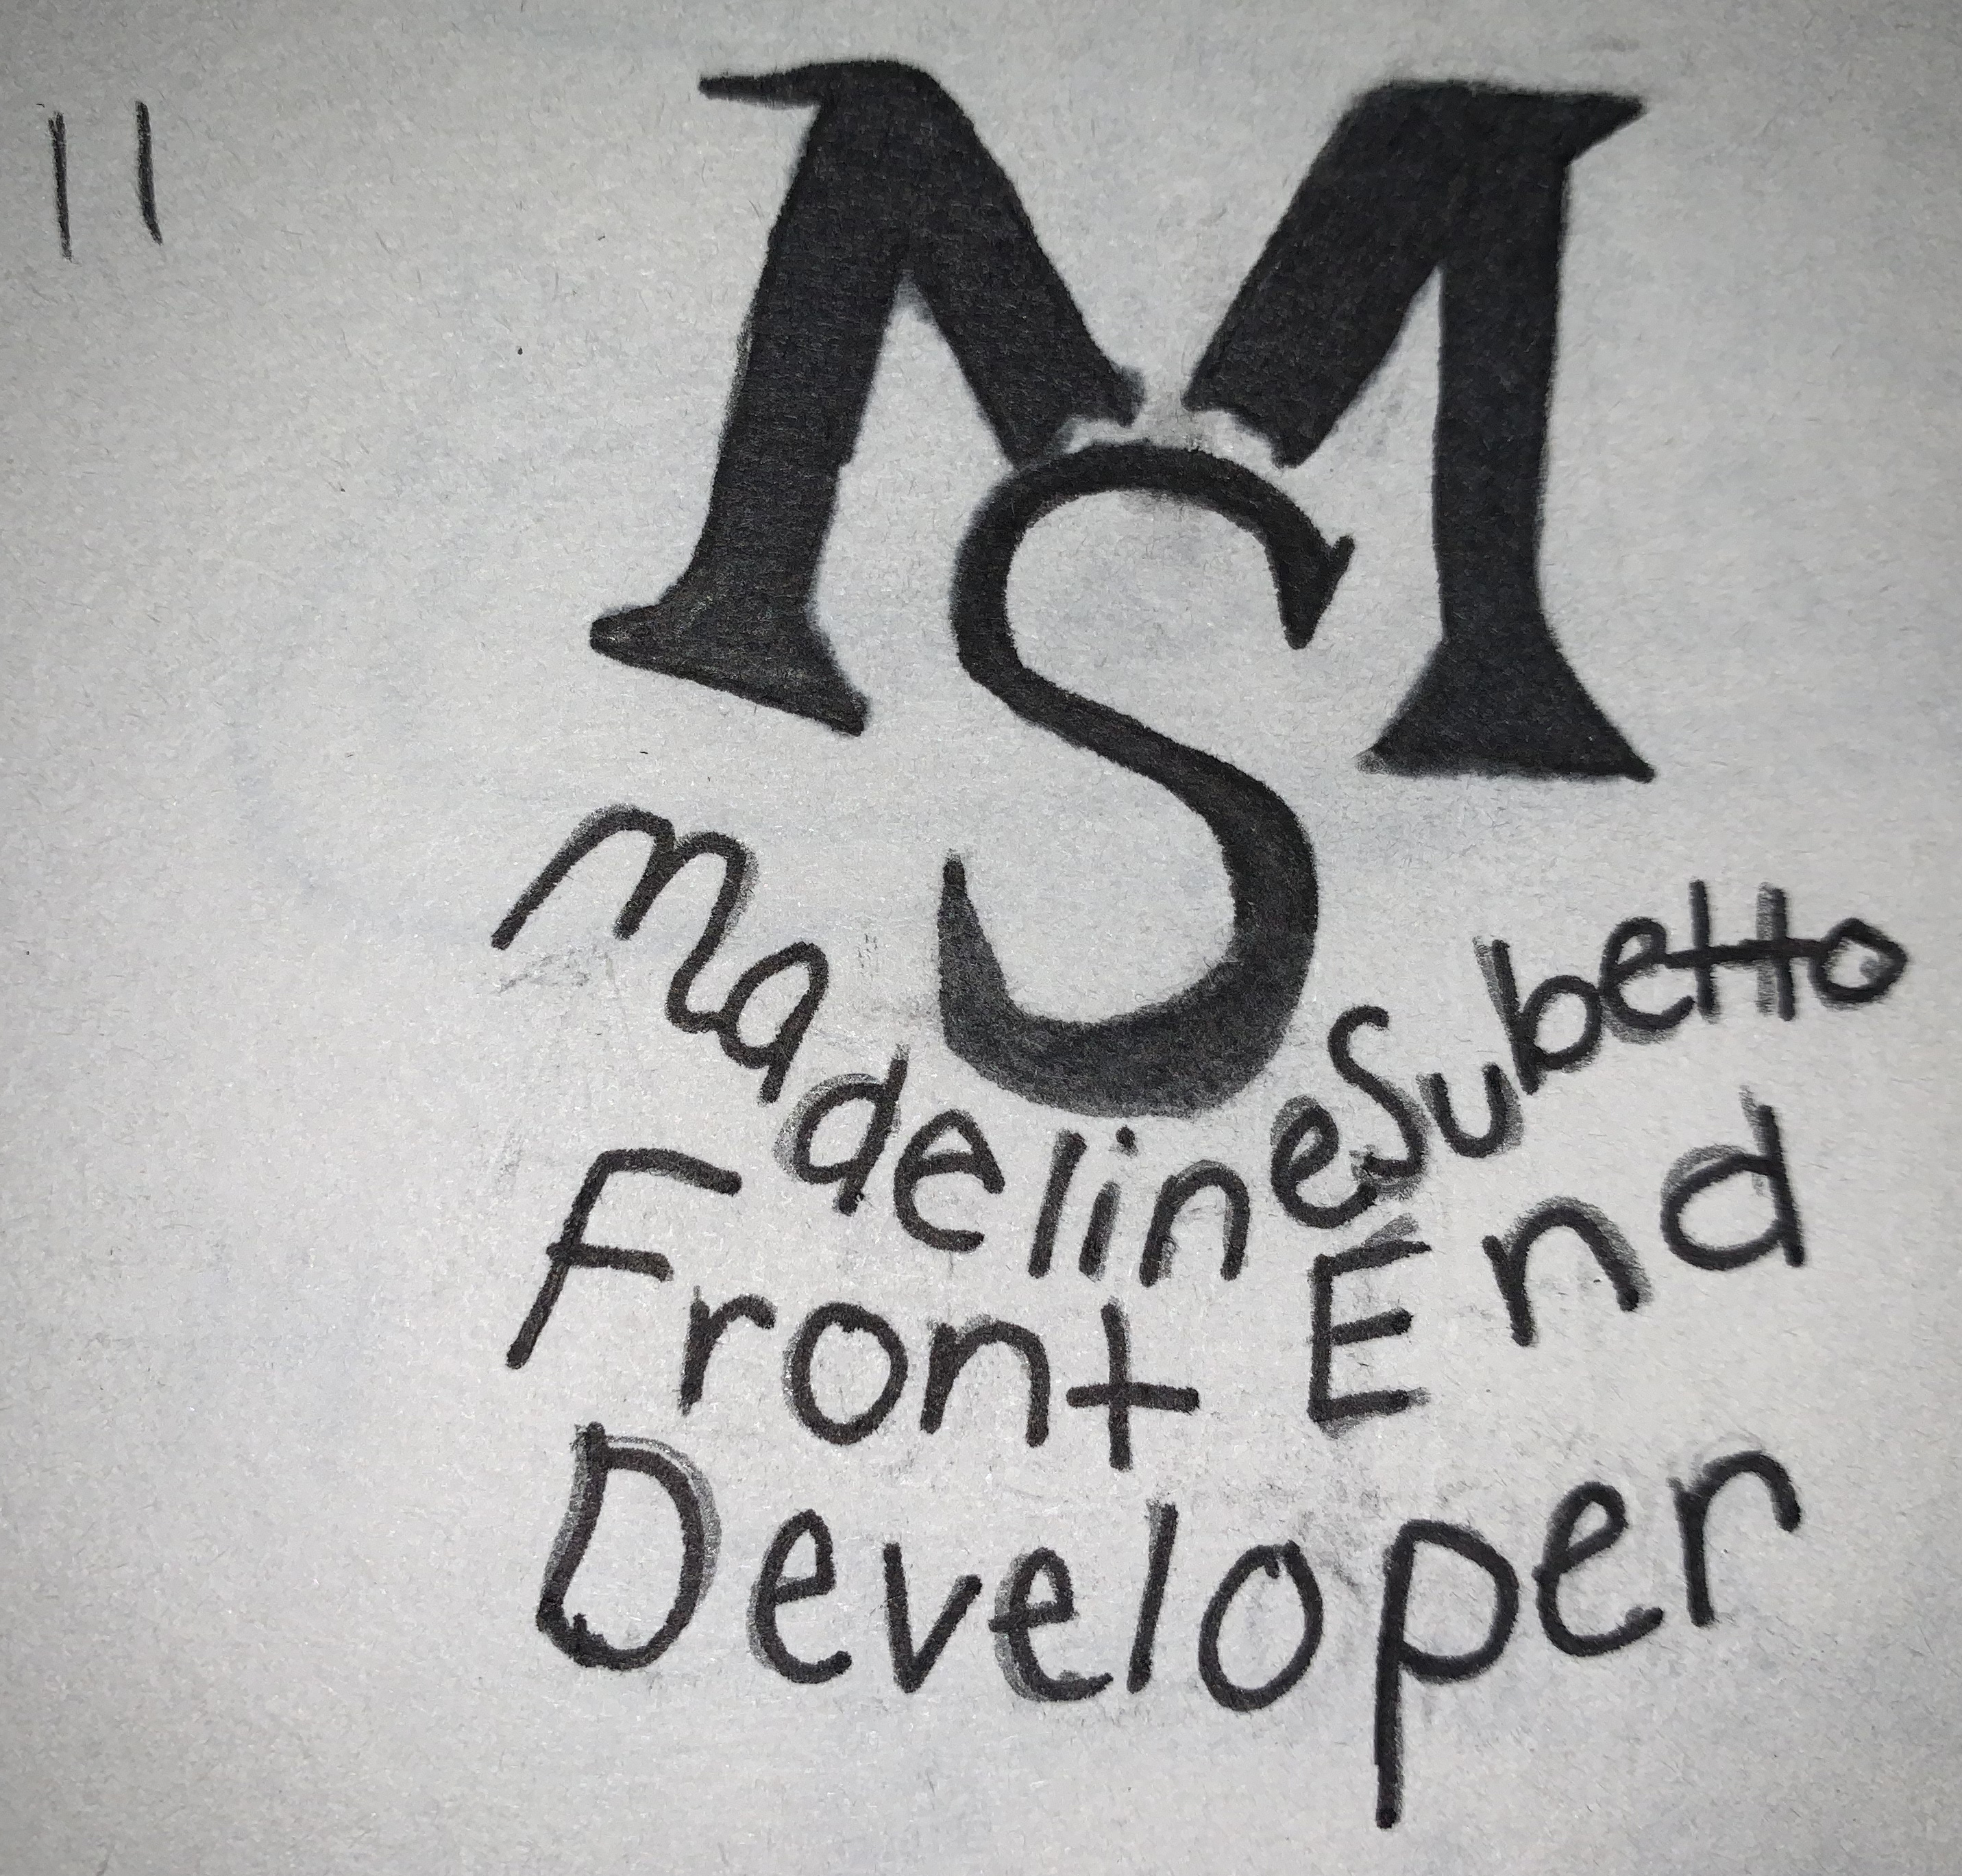 11
MS
Madeline Subetto
Front End
Developer